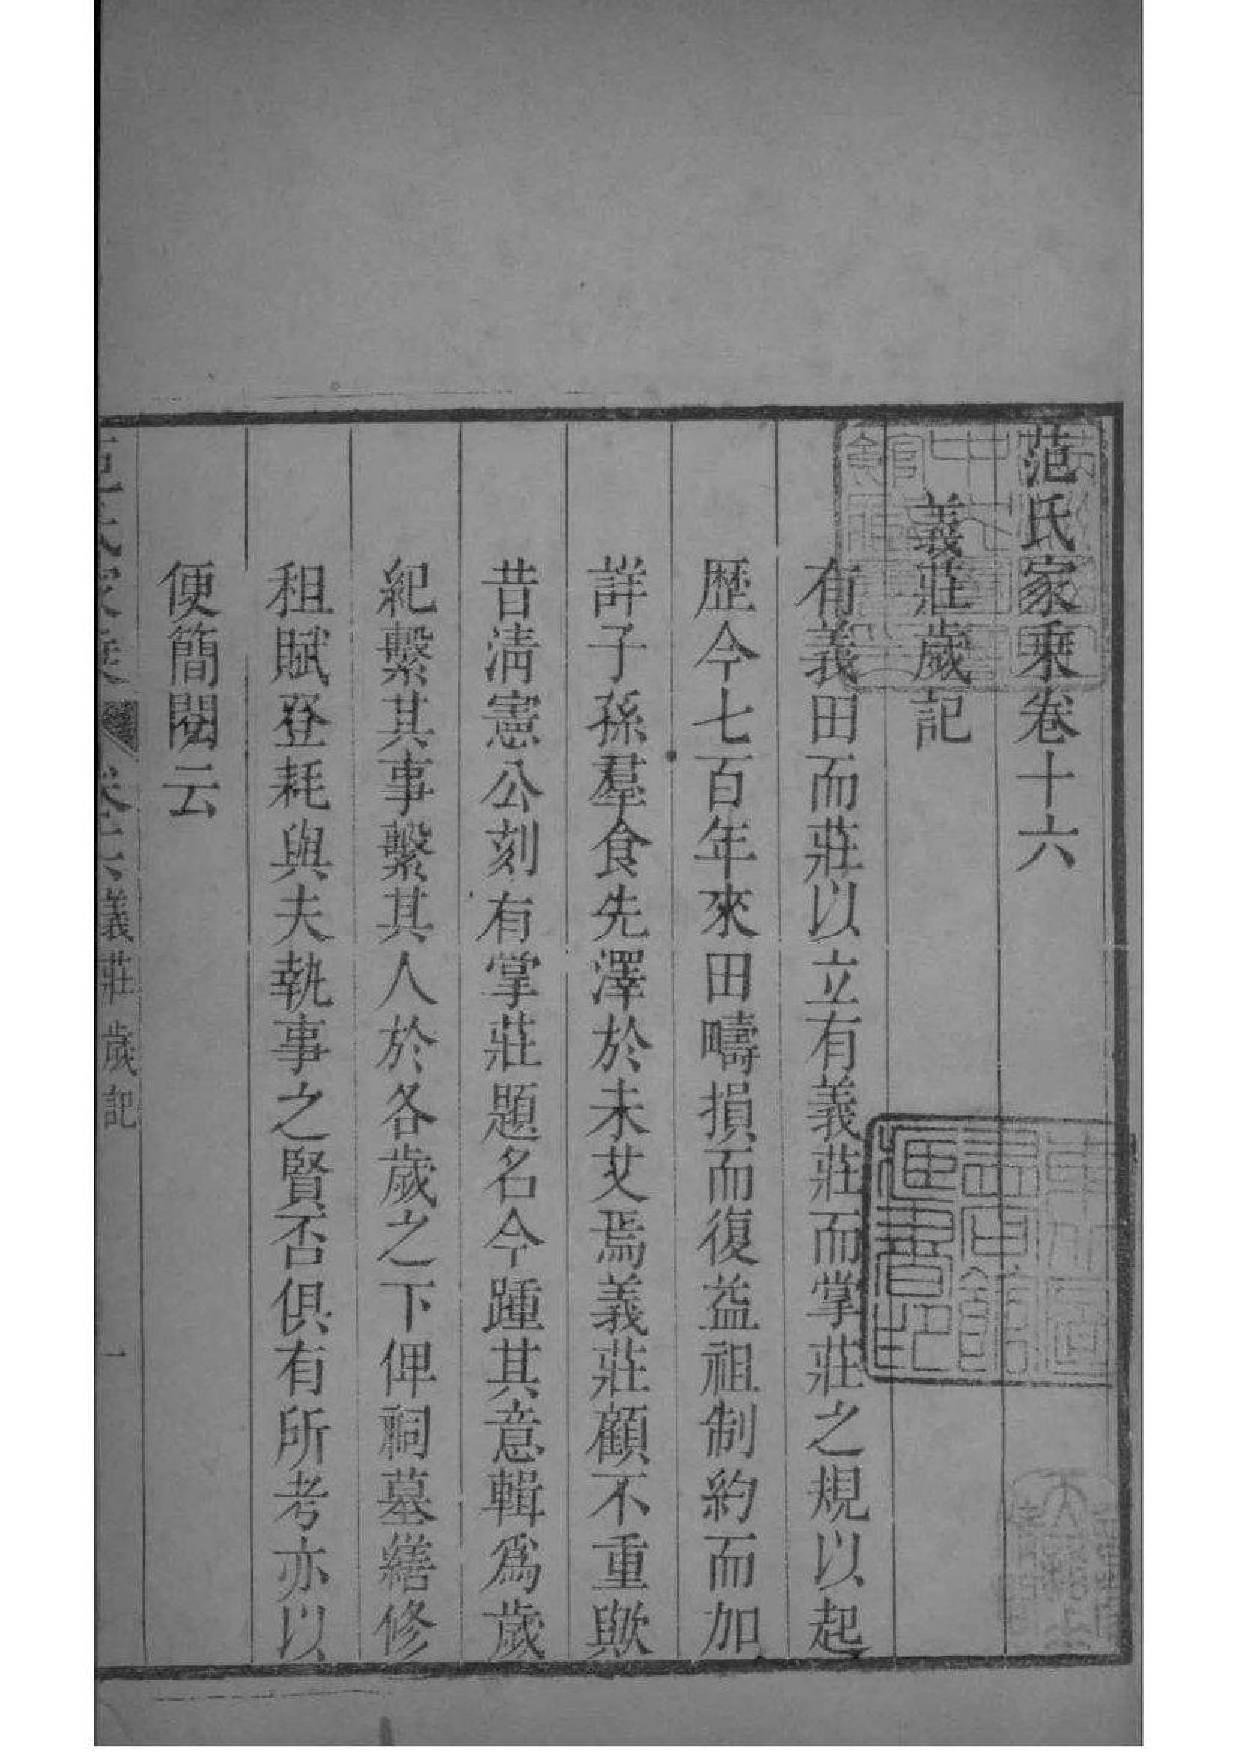 范氏家乘卷十六
義莊歲記
有義田而莊以立有義莊而掌莊之規以起
歴今七百年來田疇損而復益祖制約而加
詳子孫羣食先澤於未艾焉義莊顧不重歟
昔清憲公刻有掌莊題名今踵其意輯爲歲
紀繫其事繫其人於各歲之下俾祠墓繕修
租賦登耗與夫執事之賢否俱有所考亦以
便簡閱云
范氏家乘 卷十六 義莊歲記 一